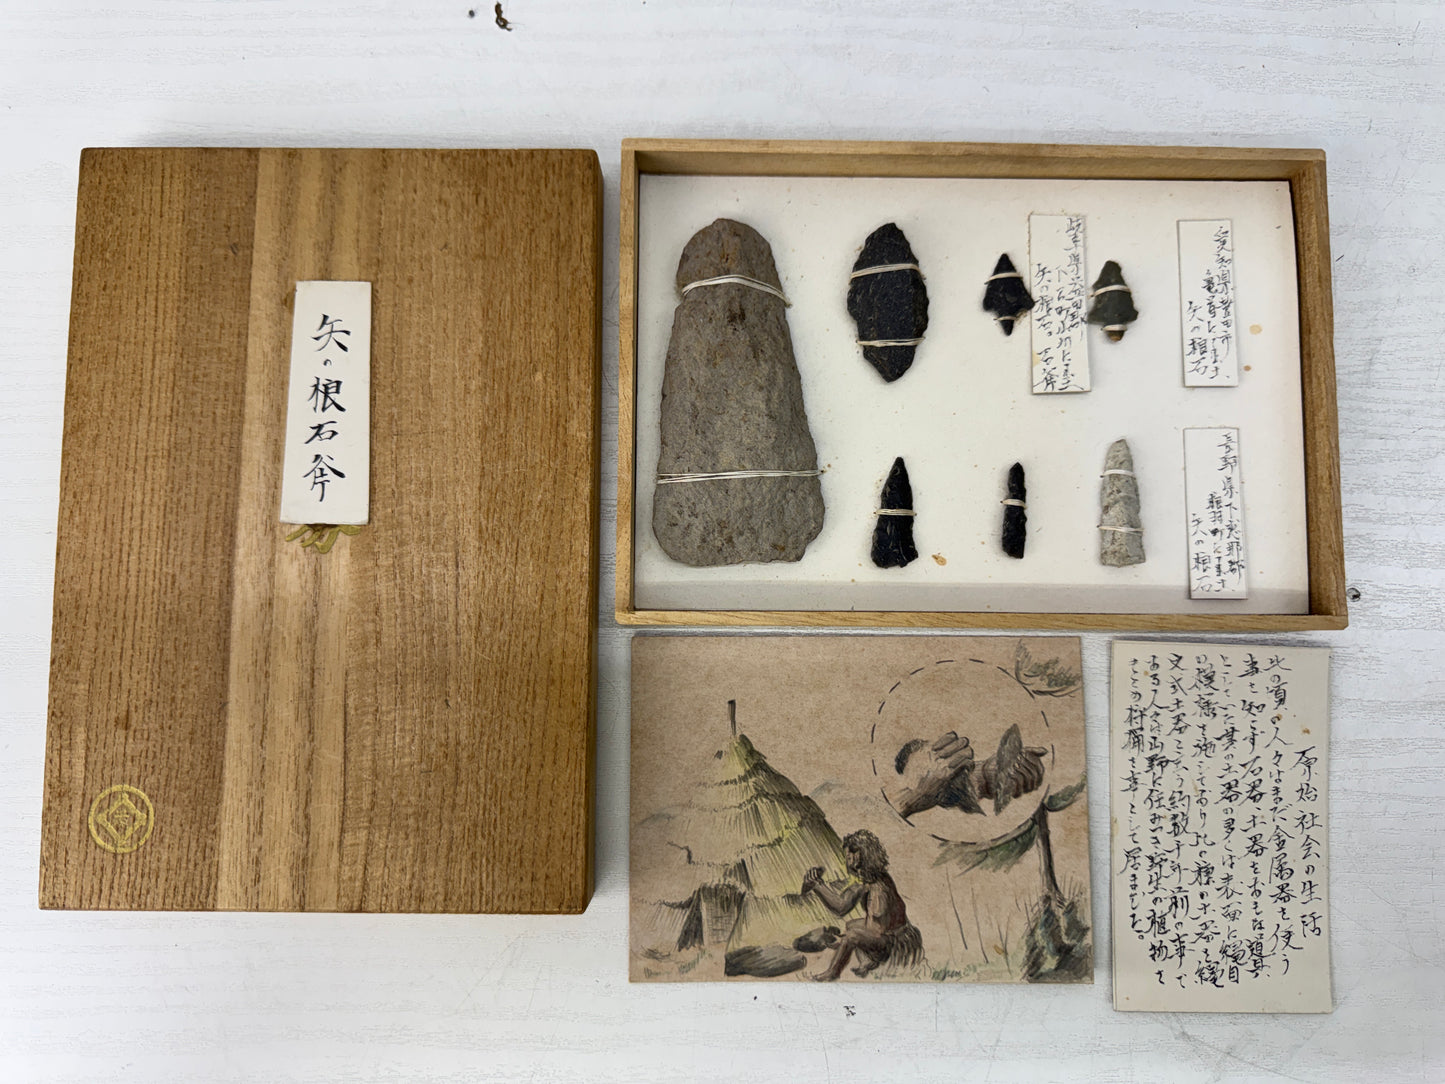 矢の根石斧
岐阜県
下石町小川に出土
矢の根石。石斧
愛知県豊田市
亀首に出土
矢の根石
長野県下恵那郡
根羽町に出土
矢の根石
原始社会の生活
此の頃の人々はまだ金属器を使う
事を知らず石器、土器をおもな道具
としていた其の土器の多くは表面に縄目
の模様を施しており此の種の土器を縄
文式土器と云う約数千年前の事で
ある人々は山野に住みつき野生の植物を
とる狩猟を事として居ました。